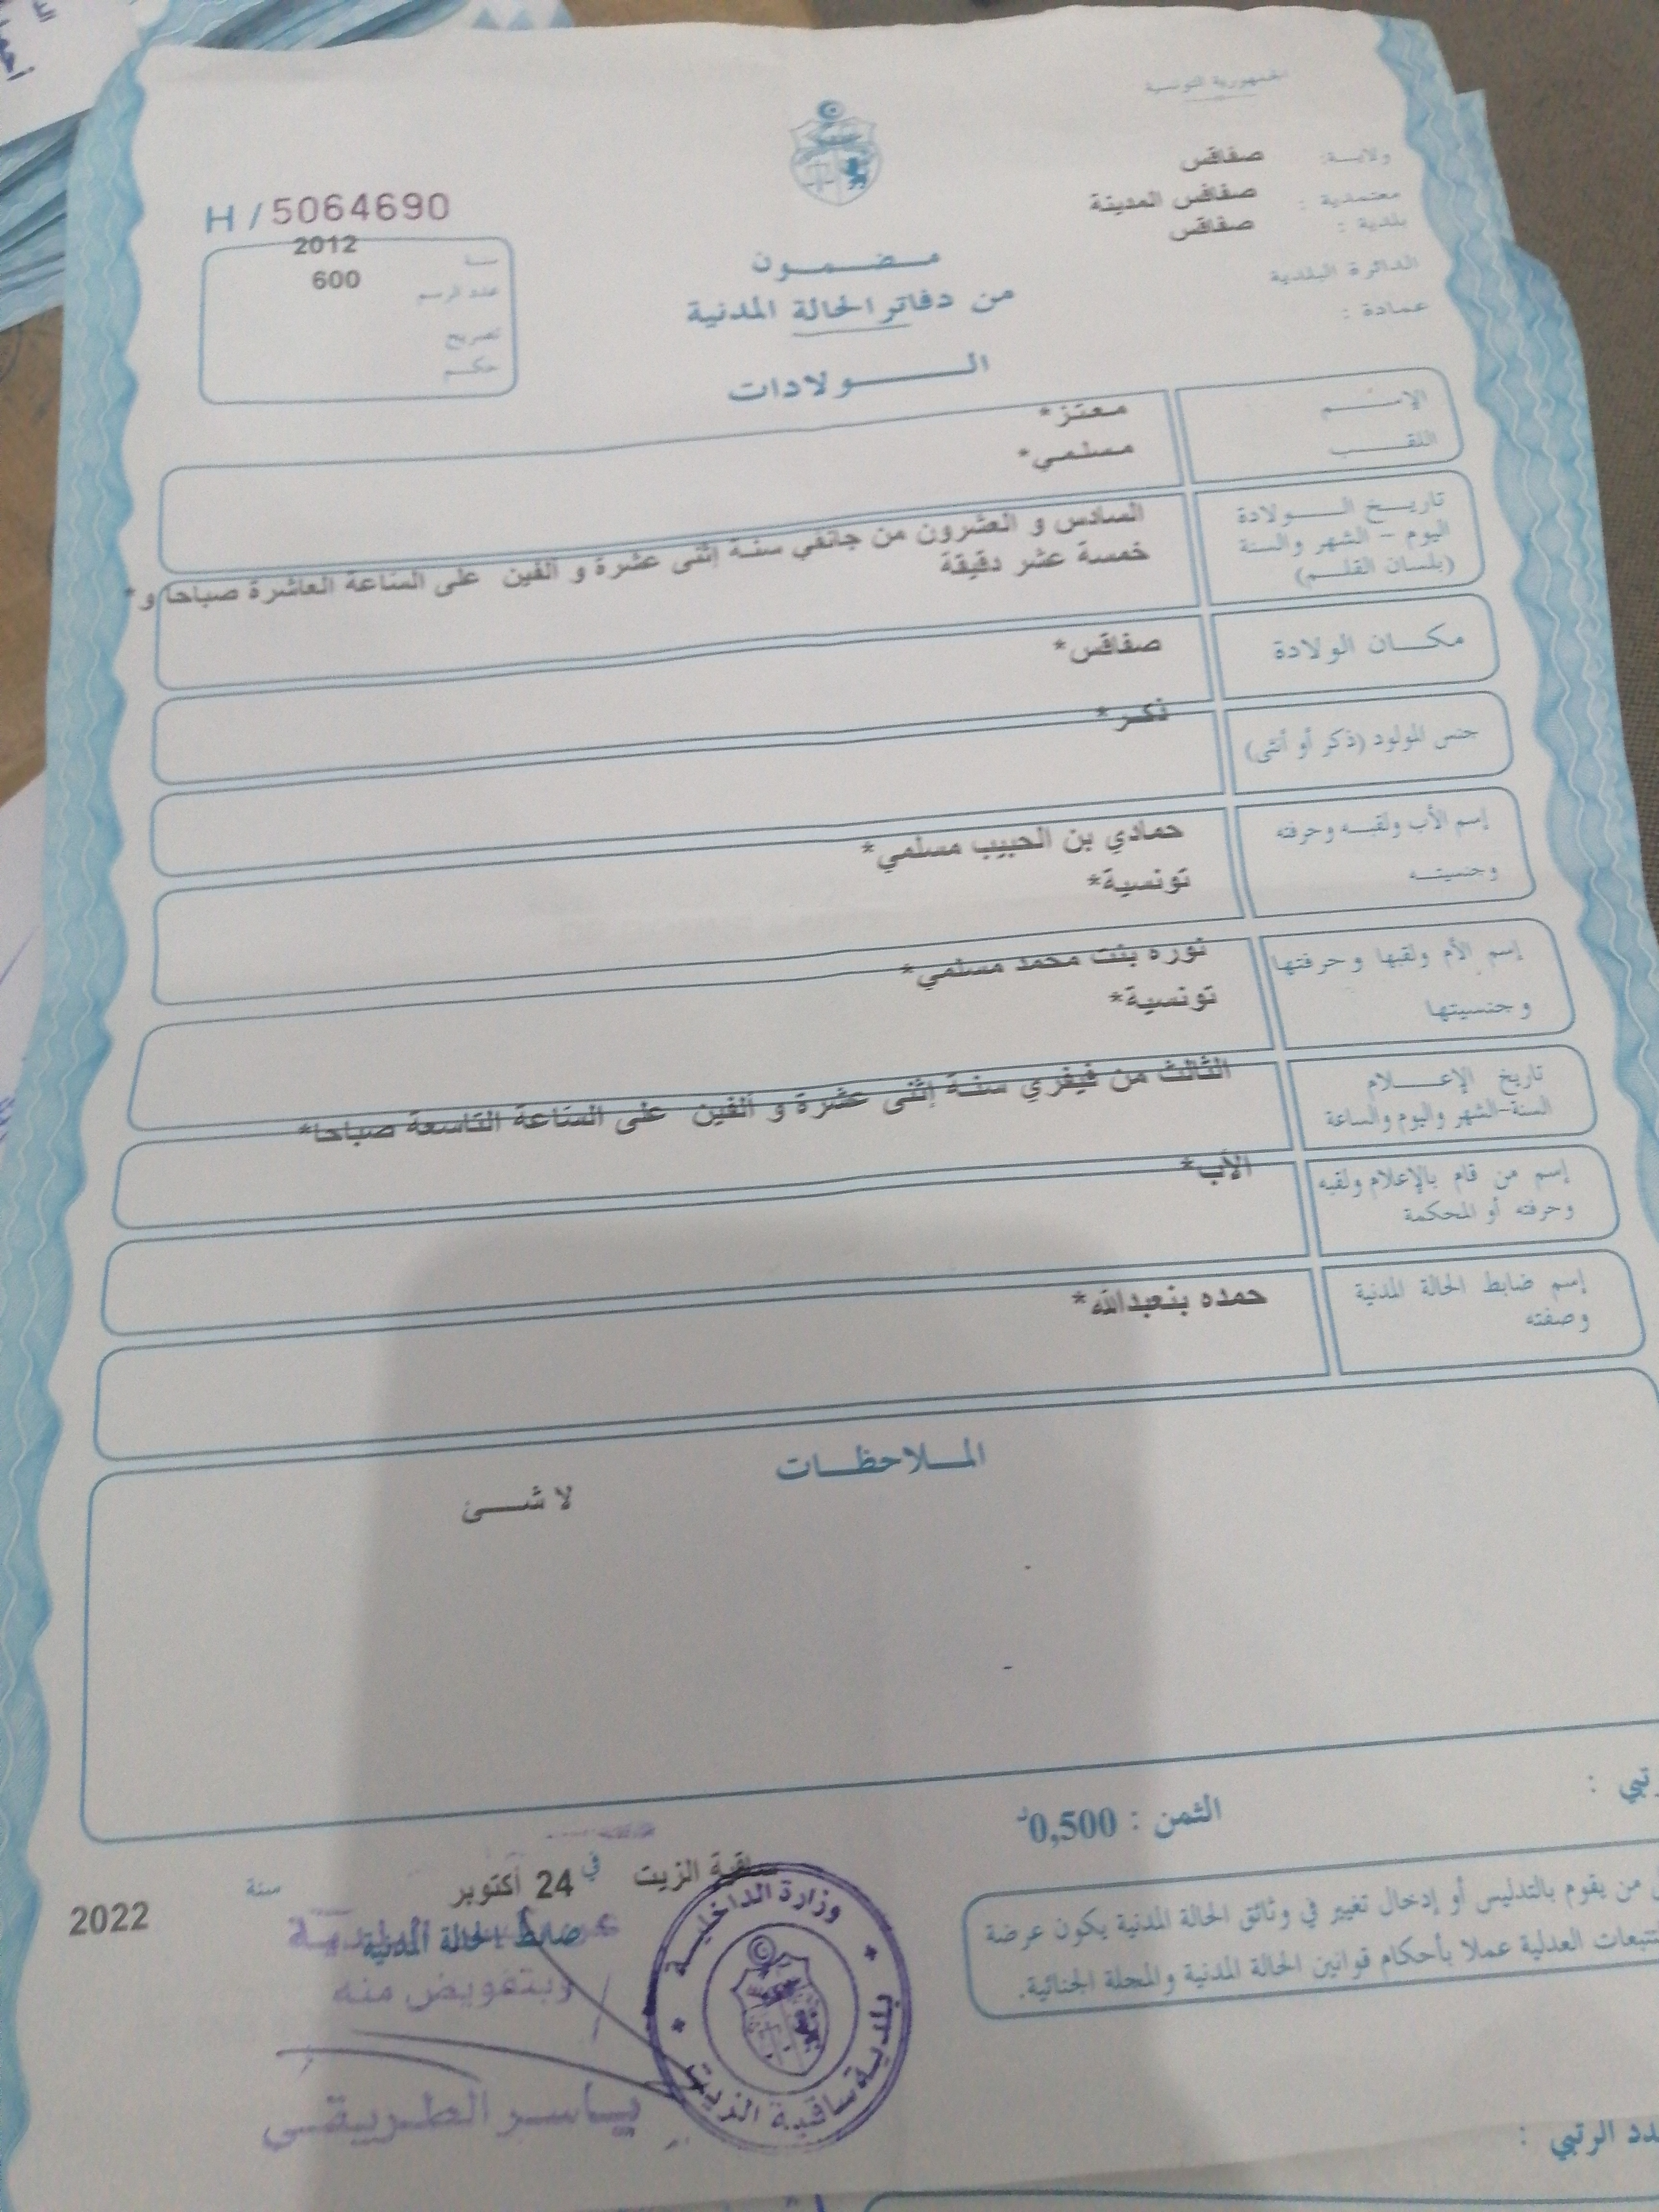 الجمهورية التونسية
ولايـــة: صفاقس
معتمدية : صفاقس المدينة
بلدية : صفاقس
الدائرة البلدية
عمادة :
H / 5064690
سنة 2012
عدد الرسم 600
تصريح
حكم
مضمون
من دفاتر الحالة المدنية
الولادات
الإسم معتز*
اللقب مسلمي*
تاريخ الولادة
اليوم - الشهر والسنة
(بلسان القلم)
السادس و العشرون من جانفي سنة إثنى عشرة و ألفين على الساعة العاشرة صباحا و*
خمسة عشر دقيقة
مكان الولادة صفاقس*
جنس المولود (ذكر أو أنثى) ذكر*
إسم الأب ولقبه وحرفته حمادي بن الحبيب مسلمي*
وجنسيته تونسية*
إسم الأم ولقبها وحرفتها نوره بنت محمد مسلمي*
وجنسيتها تونسية*
تاريخ الإعلام
السنة-الشهر واليوم والساعة
الثالث من فيفري سنة إثنى عشرة و ألفين على الساعة التاسعة صباحا*
إسم من قام بالإعلام ولقبه الأب*
وحرفته أو المحكمة
إسم ضابط الحالة المدنية حمده بنعبدالله*
وصفته
الملاحظات
لا شئ
الثمن : 0,500د
ساقية الزيت في 24 أكتوبر سنة 2022
ضابط الحالة المدنية
وبتفويض منه
ياسر الطريقي
وزارة الداخلية
بلدية ساقية الزيت
من يقوم بالتدليس أو إدخال تغيير في وثائق الحالة المدنية يكون عرضة
للتتبعات العدلية عملا بأحكام قوانين الحالة المدنية والمجلة الجنائية.
الرتبي :